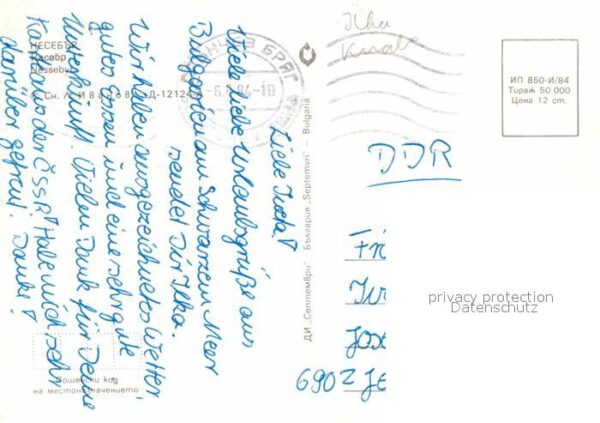 НЕСЕБЪР
Несебр
Nessebyr
Сн. Л. Иванов Д-12124-А
СЛЪНЧЕВ БРЯГ
-6.84-10
Ilka
Knab
ИП 850-И/84
Тираж 50 000
Цена 12 ст.
Liebe Jutta!
Viele liebe Urlaubsgrüße aus
Bulgarien am Schwarzen Meer
sendet Dir Ilka.
Wir haben ausgezeichnetes Wetter,
gutes Essen und eine sehr gute
Unterkunft. Vielen Dank für Deine
Karte aus der ČSSR! Habe mich sehr
darüber gefreut! Danke!
ДИ „Септември" България „Septemvri" – Bulgaria
DDR
Fr
Ju
Jos
6902 Je
privacy protection
Datenschutz
Пощенски код
на местоназначението